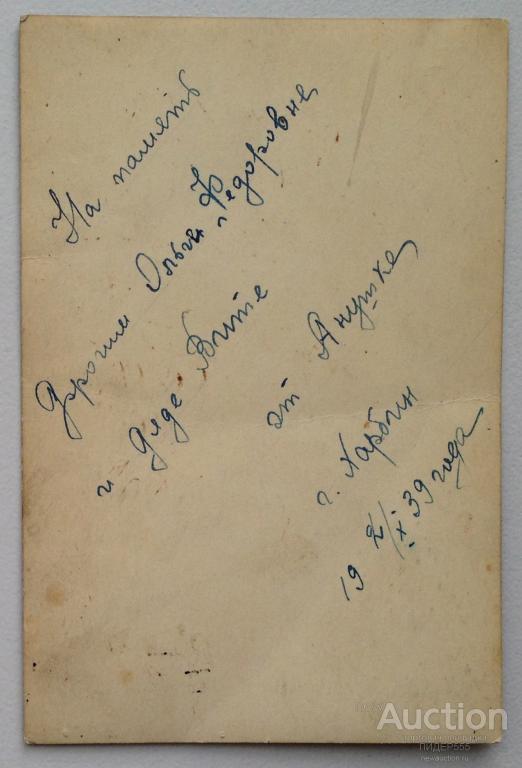 На память
Дрогим Ольги Федоровне
и Дяде Вите
от Анушке
г. Харбин
19 2/X 39 года
Auction
ЛИДЕР555
newauction.ru